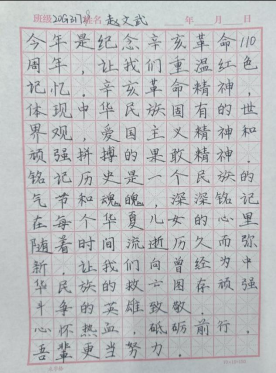 班级 姓名 赵文武 年 月 日
今年是纪念辛亥革命110
周年，让我们重温红色
记忆，辛亥革命精神，
体现中华民族固有的世
界观，爱国主义精神和
顽强拼搏的果敢精神，
铭记历史是一个民族的
气节和魂魄，深深铭记
在每个华夏儿女的心里
随着时间流逝历久而弥
新，让我们向曾经为中
华民族的救亡图存顽强
斗争的英雄致敬，
心怀热血，砥砺前行，
吾辈更当努力．